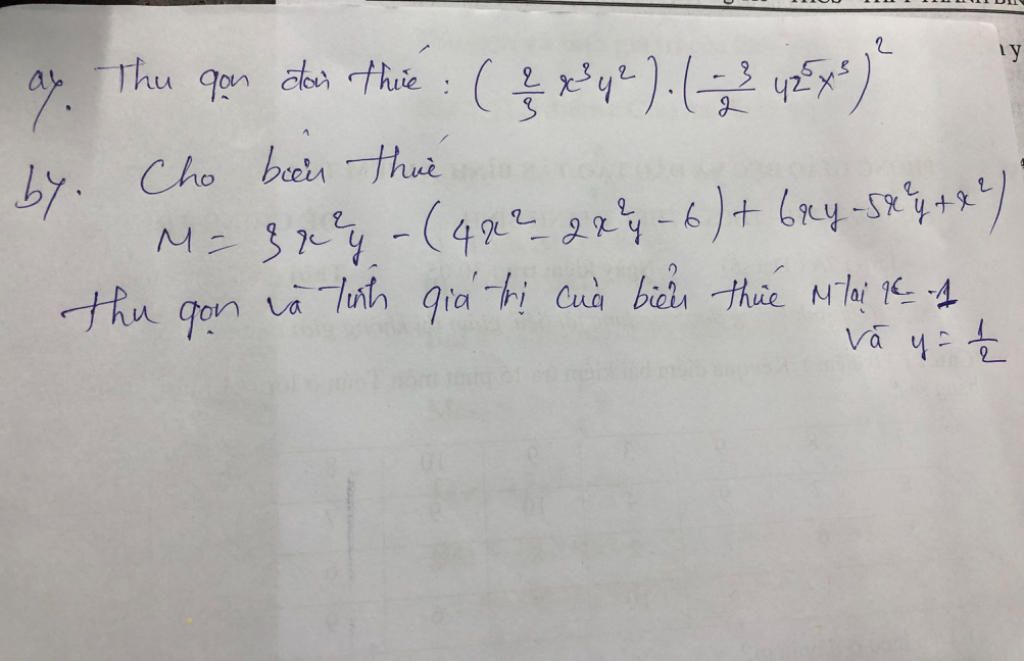 a). Thu gọn đơn thức : ( 2/3 x³y² ) . ( -3/2 yz⁵x³ )²
b). Cho biểu thức
M = 3x²y - ( 4x² - 2x²y - 6 ) + 6xy - 5x²y + x² )
thu gọn và tính giá trị của biểu thức M tại x = -1
và y = 1/2